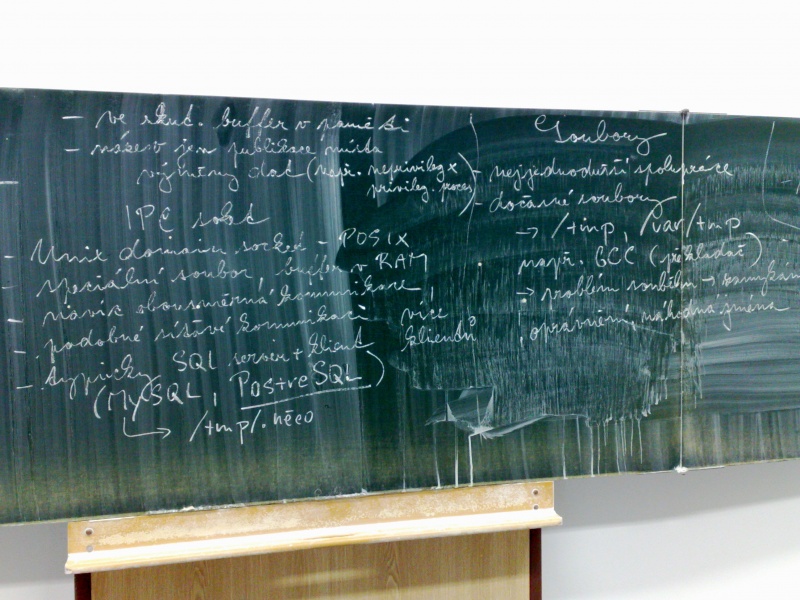 - ve skut. buffer v paměti
- název jen publikace místa
výměny dat (např. neprivileg x
privileg. proces)
IPC soket
- Unix domain socket - POSIX
- speciální soubor, buffer v RAM
- navíc obousměrná komunikace,
- podobné síťové komunikaci více
klientů
- typicky SQL server + klient
(MySQL, PostreSQL)
→ /tmp/.něco
Soubory
- nejjednodušší spolupráce
- dočasné soubory
→ /tmp, /var/tmp
např. GCC (překladač)
→ problém souběhu → zamykání
, oprávnění, náhodná jména